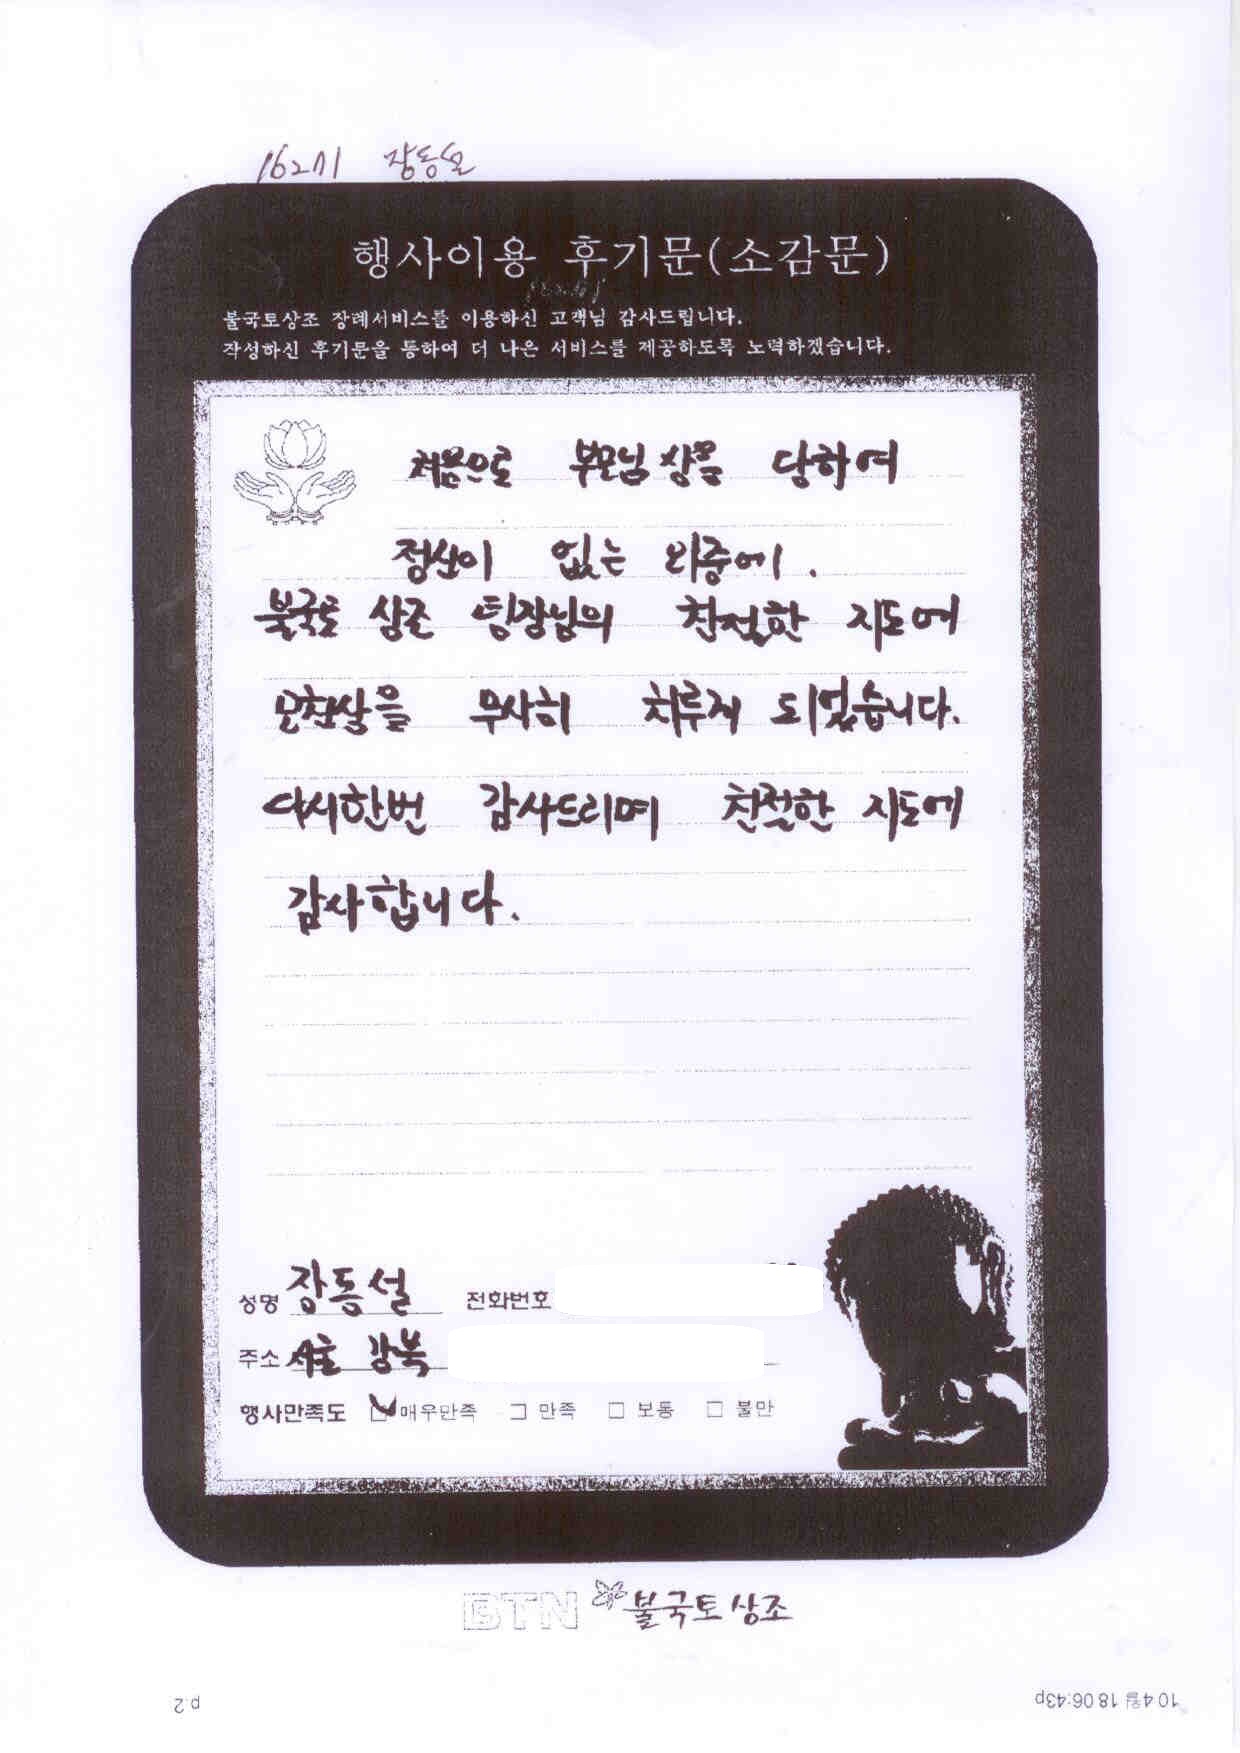 162기 장동설
행사이용 후기문(소감문)
불국토상조 장례서비스를 이용하신 고객님 감사드립니다.
작성하신 후기문을 통하여 더 나은 서비스를 제공하도록 노력하겠습니다.
처음으로 부모님 상을 당하여
정신이 없는 와중에.
불국토 상조 팀장님의 친절한 지도에
모친상을 무사히 치루게 되었습니다.
다시한번 감사드리며 친절한 지도에
감사합니다.
성명 장동설 전화번호
주소 서울 강북
행사만족도 매우만족 만족 보통 불만
BTN 불국토상조
p.2
10 4월 18 06:43p